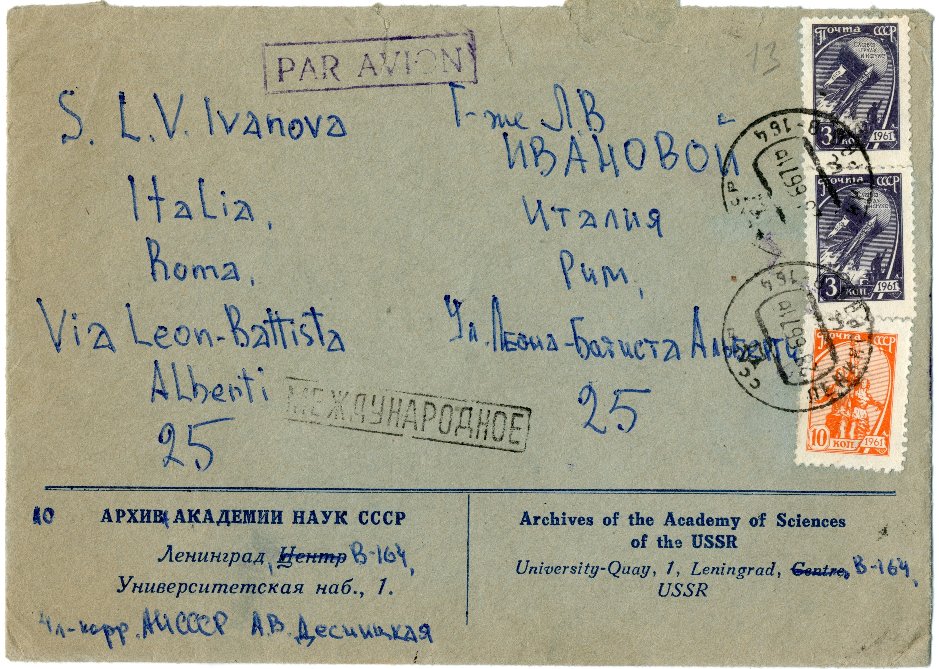 13
PAR AVION
S. L.V. Ivanova
Italia,
Roma,
Via Leon-Battista
Alberti
25
Г-же Л.В
ИВАНОВОЙ
Италия
Рим,
Ул. Леона-Батиста Альберти
25
МЕЖДУНАРОДНОЕ
Почта СССР
3 коп 1961
Почта СССР
3 коп 1961
Почта СССР
10 коп 1961
В-164
СССР
164
СССР
10 АРХИВ АКАДЕМИИ НАУК СССР
Ленинград, Центр В-164,
Университетская наб., 1.
Чл-корр. АН СССР А.В. Десницкая
Archives of the Academy of Sciences
of the USSR
University-Quay, 1, Leningrad, Centre, B-164,
USSR